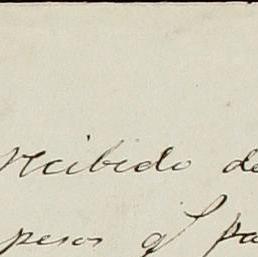 Recibido de
pesos qf pa